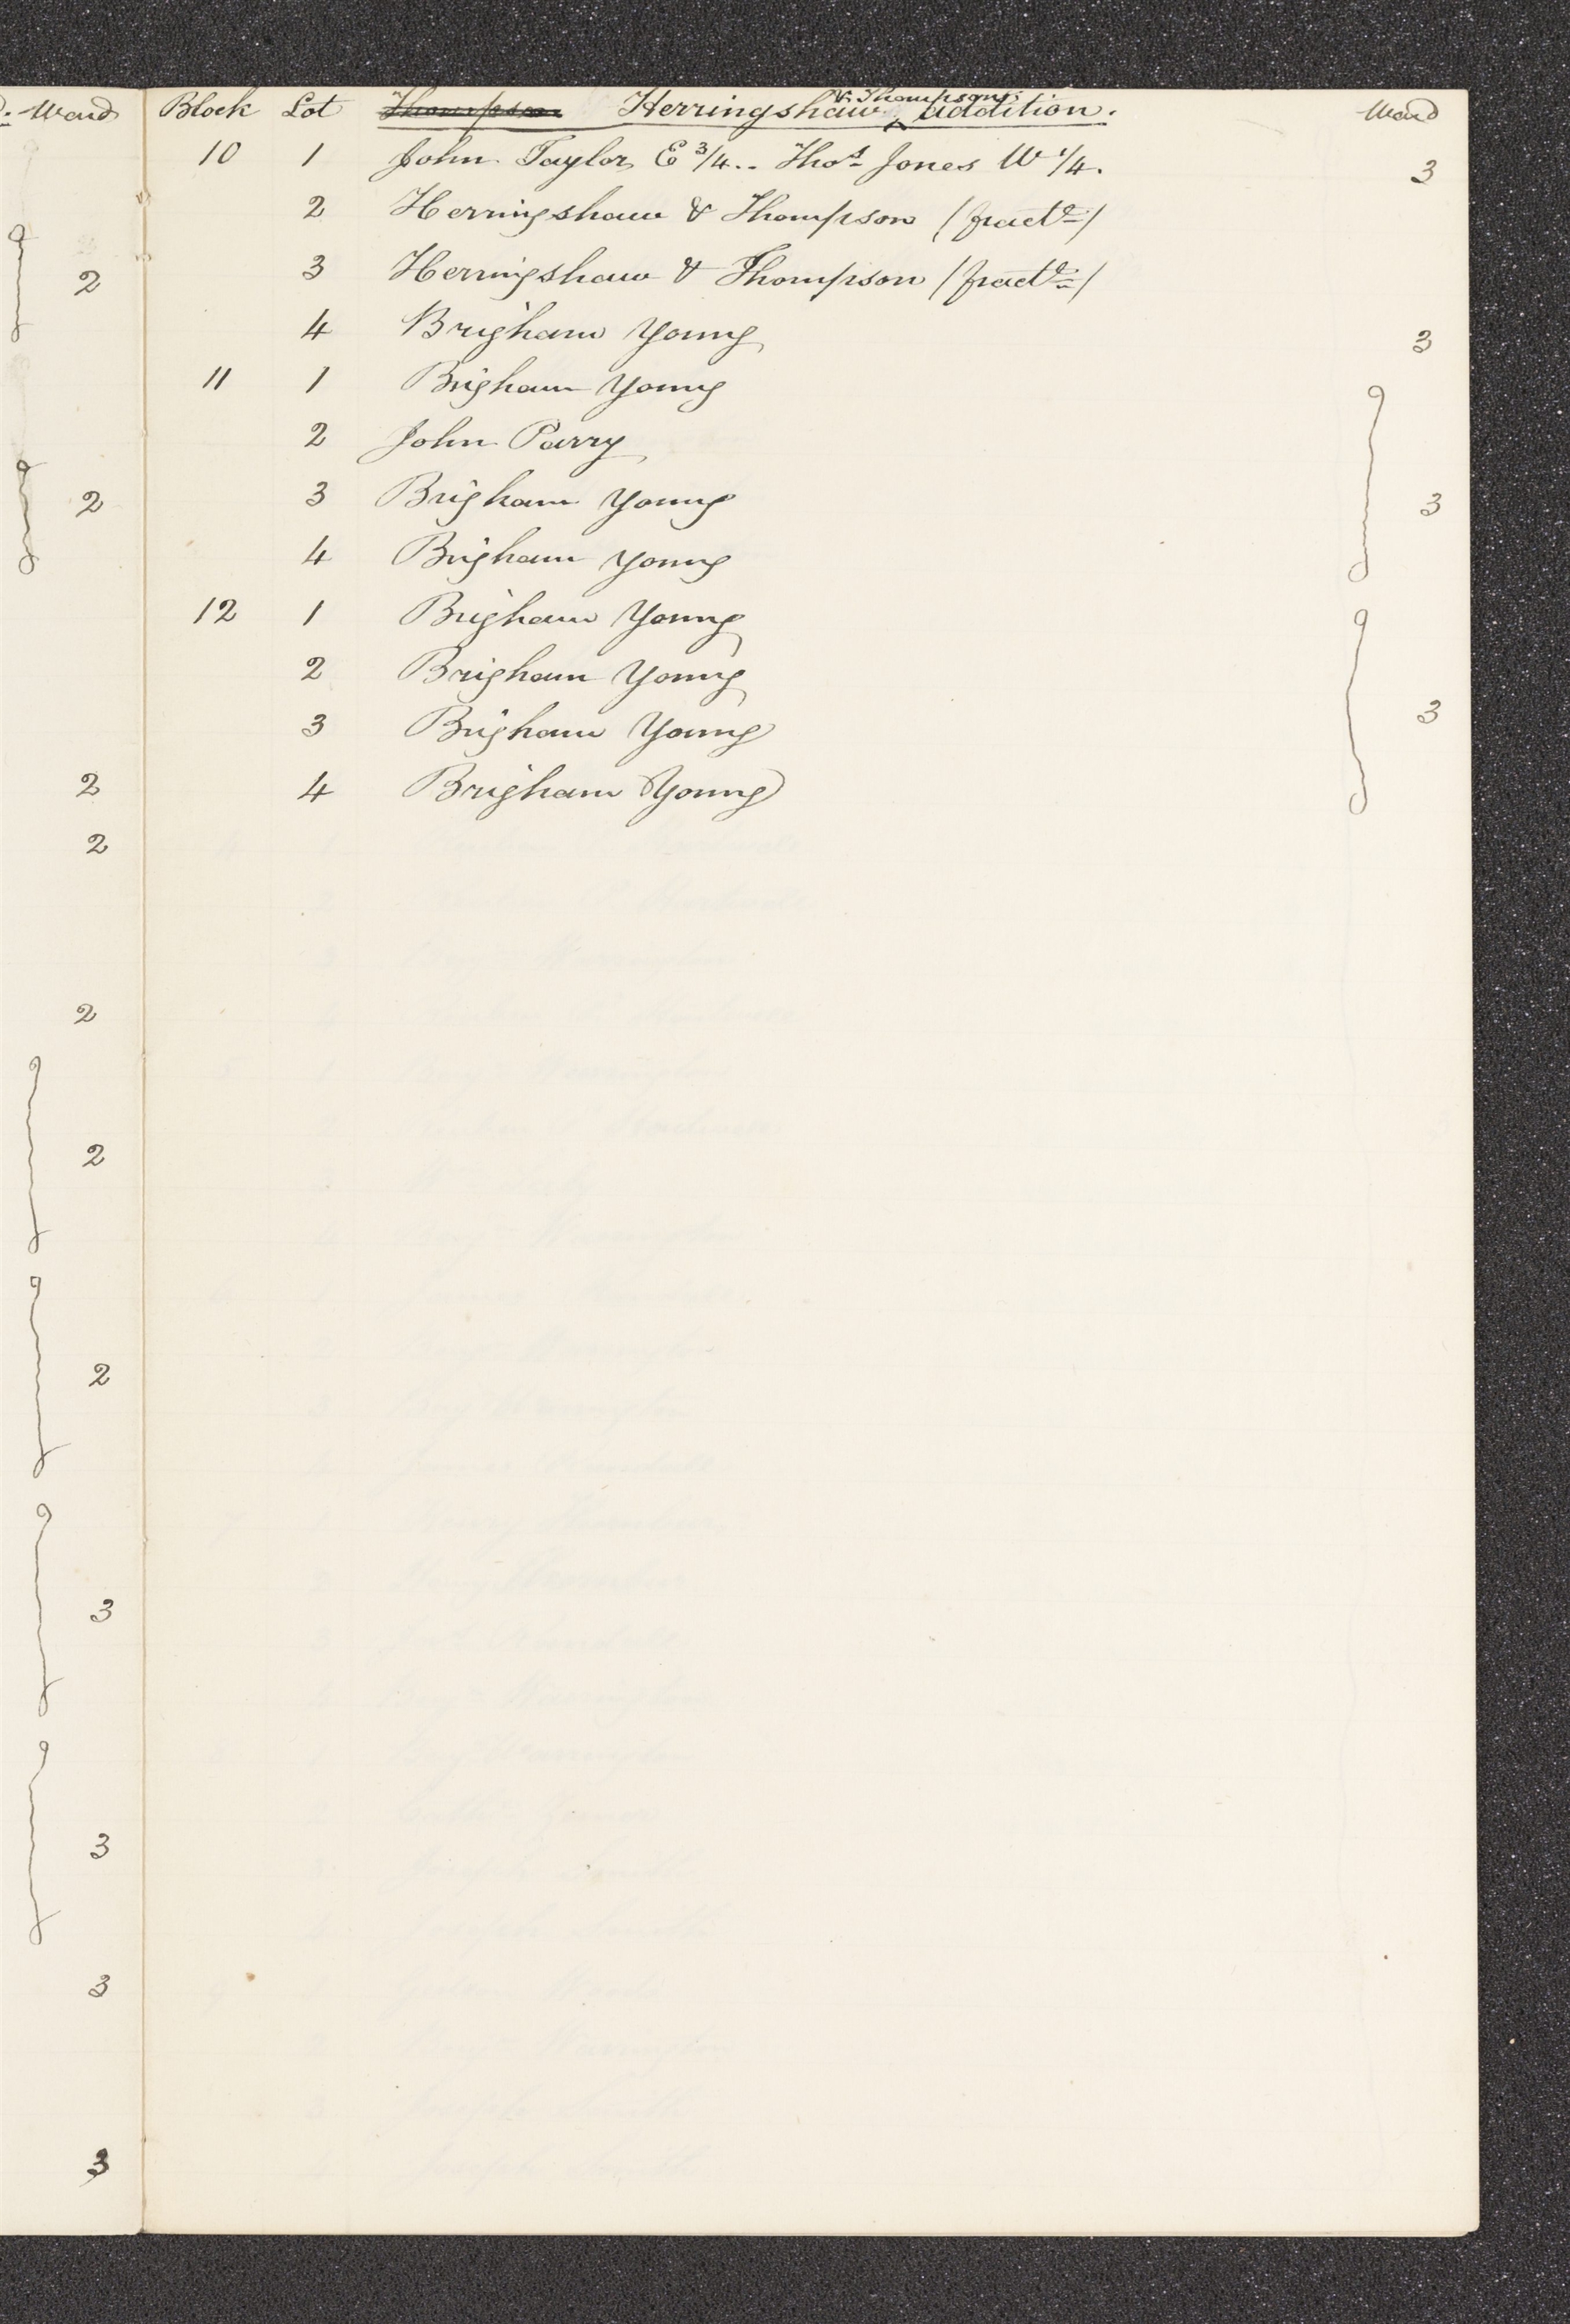 Ward
2
2
2
2
2
2
2
3
3
3
3
Block Lot Thompson Herringshaw & Thompsons addition. Ward
10 1 John Taylor E 3/4.. Thos Jones W 1/4. 3
2 Herringshaw & Thompson (fractl)
3 Herringshaw & Thompson (fractl)
4 Brigham Young 3
11 1 Brigham Young
2 John Parry
3 Brigham Young 3
4 Brigham Young
12 1 Brigham Young
2 Brigham Young
3 Brigham Young 3
4 Brigham Young